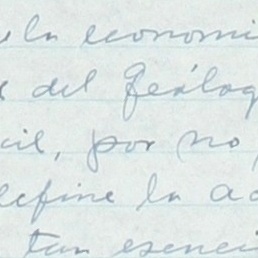 la economi
del Geólog
cil, por no
define la ac
tan esenci